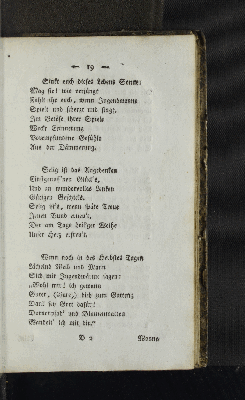 — 19 —
Sinkt euch dieses Lebens Sonne;
Mag sie! wie verjüngt
Fühlt ihr euch, wenn Jugendwonne
Spielt und scherzt und singt.
Im Getöse ihrer Spiele
Weckt Erinnerung
Vorempfundene Gefühle
Aus der Dämmerung.
Selig ist das Angedenken
Einstgenoss'nen Glück's,
Und an wundervolles Lenken
Gütigen Geschick's.
Selig ist's, wenn späte Treue
Jenen Bund erneu't,
Der am Tage heil'ger Weihe
Unser Herz erfreu't.
Wenn noch in des Herbstes Tagen
Lächelnd Weib und Mann
Sich mit Jugendwärme sagen:
„Wohl mir! ich gewann
Guter, (Gute,) dich zum Gatten;
Dank sey Gott dafür!
Dornenpfad' und Blumenmatten
Wandelt' ich mit dir.“
B 2
Wonne